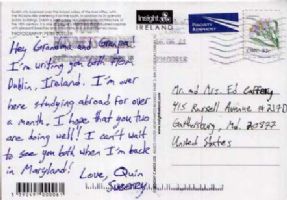 PHOTOGRAPHY: PETER
Insight
IRELAND
PRIORITY
Hey Grandma and Grandpa!
I'm writing you both from
Dublin, Ireland. I'm over
here studying abroad for over
a month. I hope that you two
are doing well! I can't wait
to see you both when I'm back
in Maryland! Love, Quin
Mr. and Mrs. Ed
415 Russell Avenue #
Gaithersburg, Md. 20877
United States